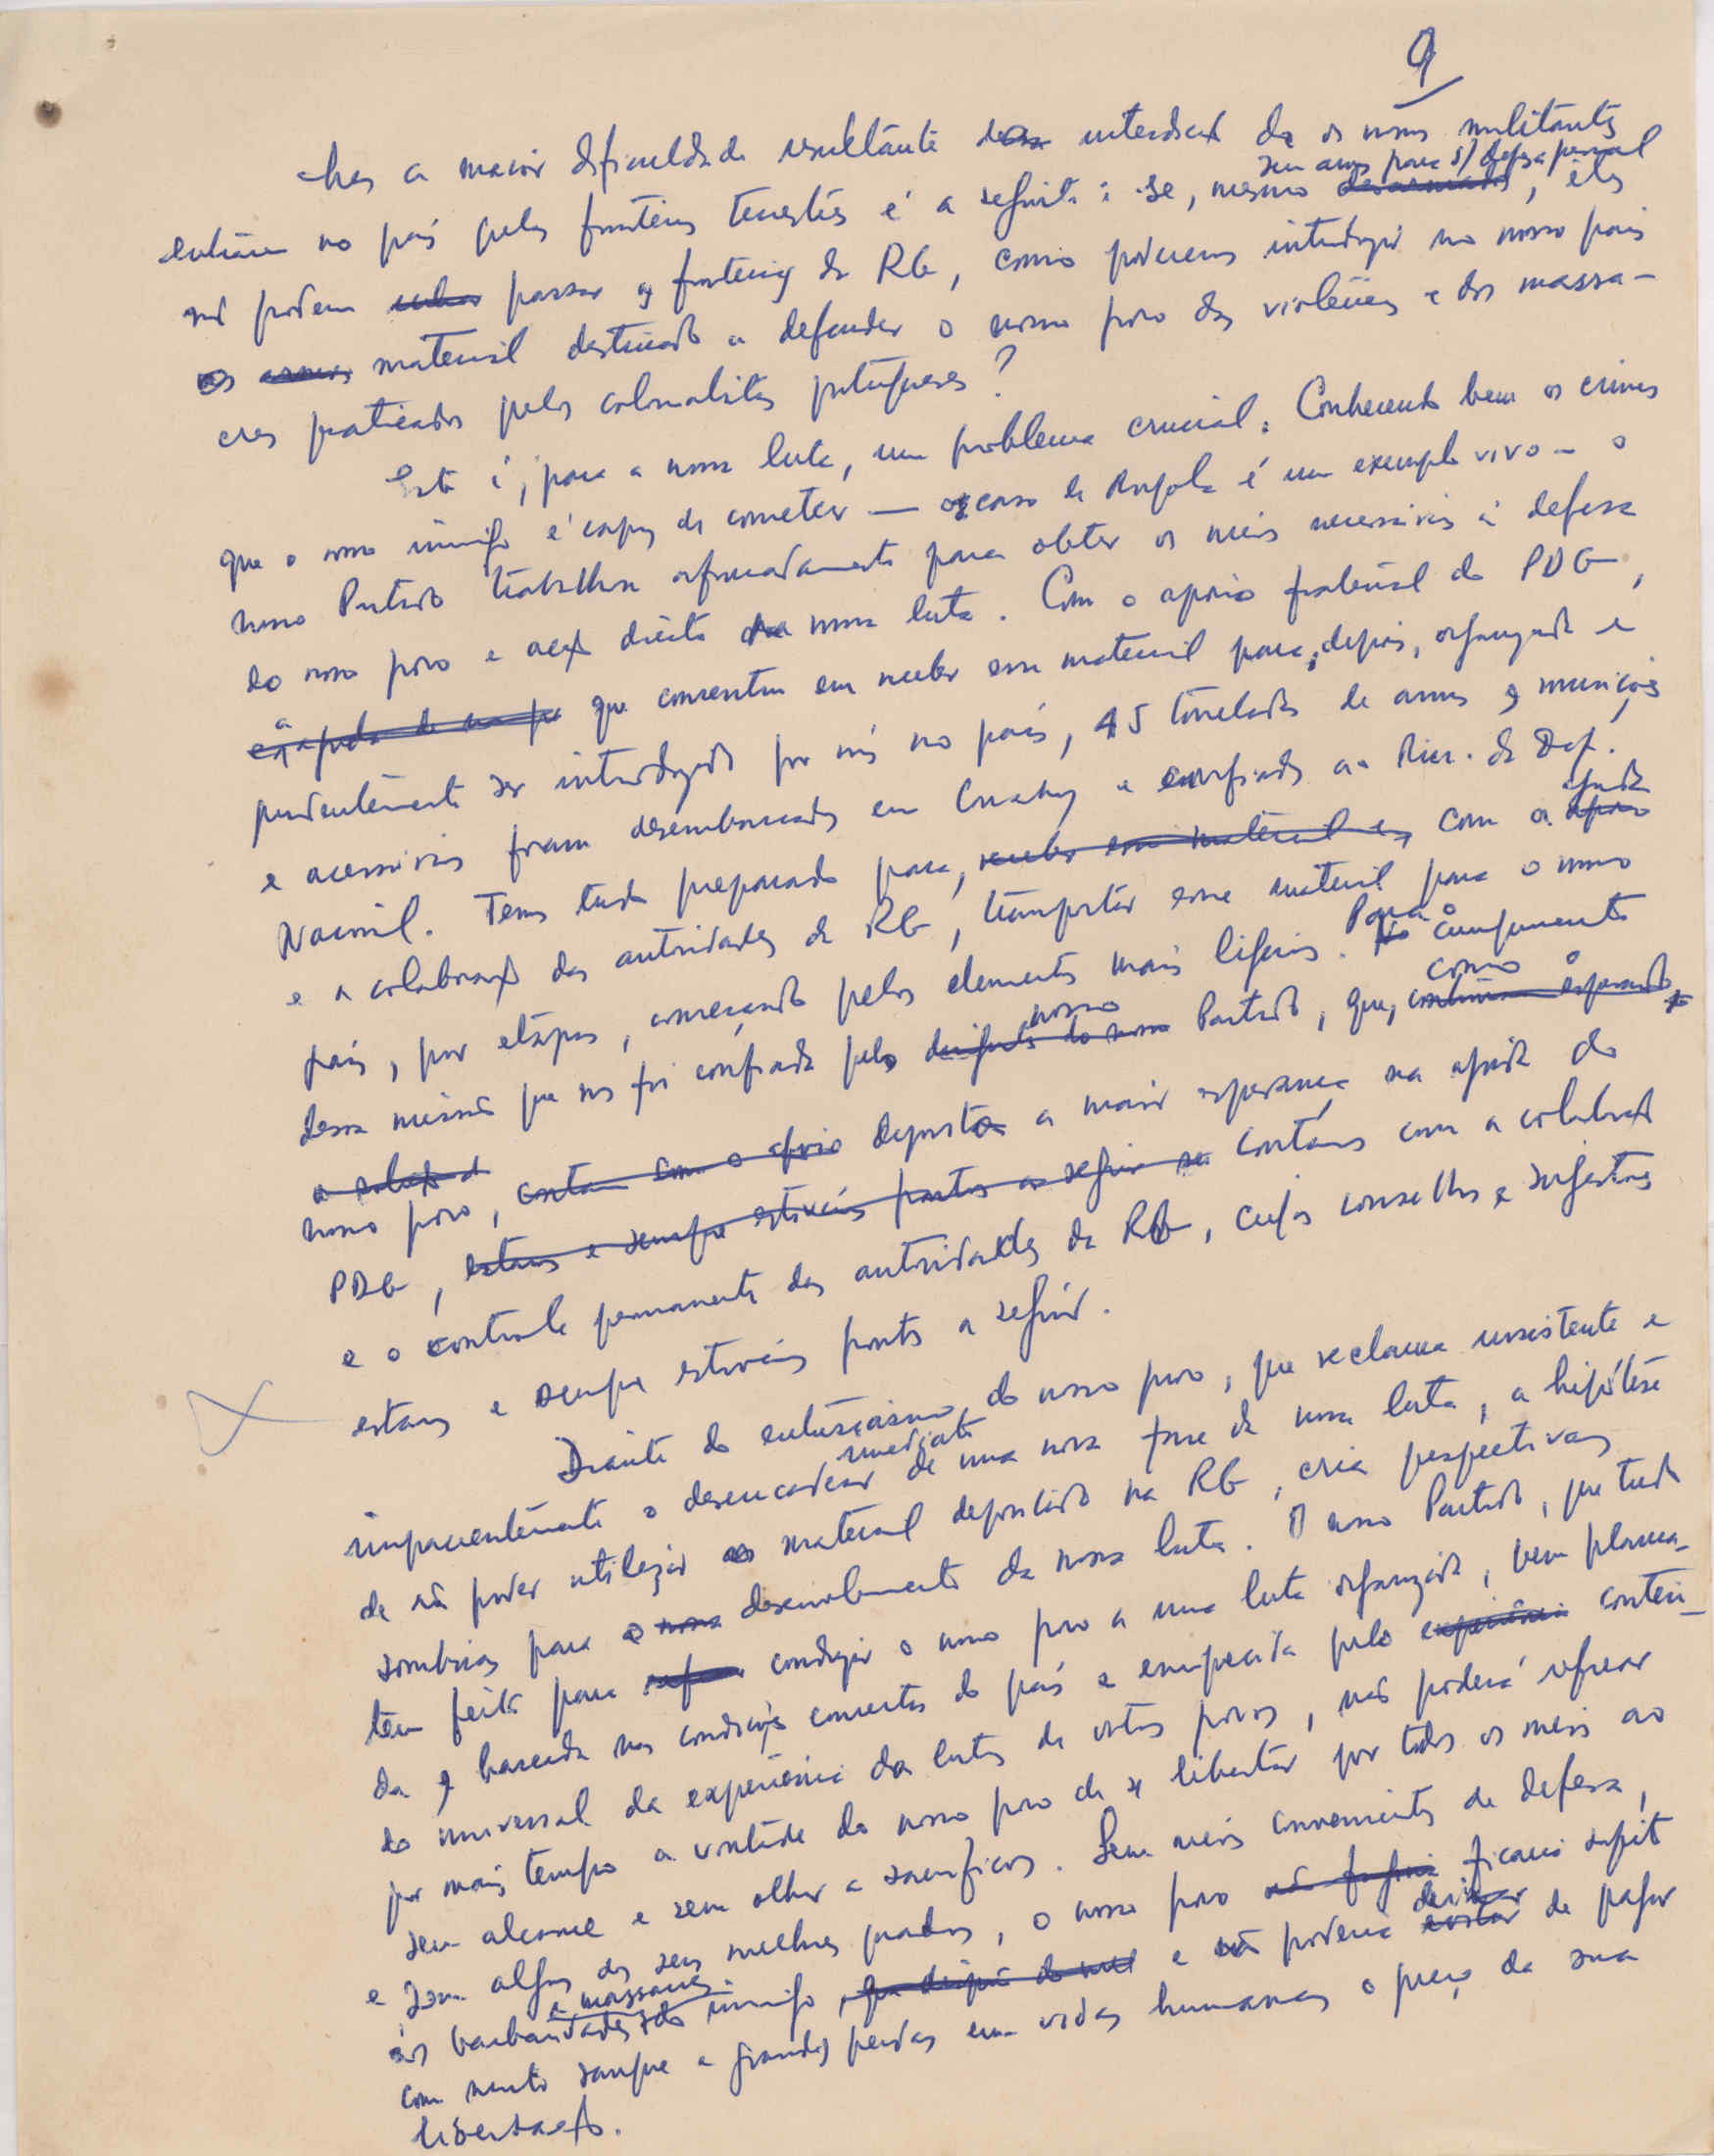 9
Mas a maior dificuldade resultante da interdição de os nossos militantes
sem armas para s/ defesa pessoal
entrarem no país pelas fronteiras terrestres é a seguinte: se, mesmo desarmados, eles
não podem passar as fronteiras da RG, como poderemos introduzir no nosso país
os armas material destinado a defender o nosso povo das violências e dos massa-
cres praticados pelos colonialistas portugueses?
Este é, para a nossa luta, um problema crucial. Conhecendo bem os crimes
que o nosso inimigo é capaz de cometer — o caso de Angola é um exemplo vivo — o
nosso Partido trabalhou esforçadamente para obter os meios necessários à defesa
do nosso povo e ao direito da nossa luta. Com o apoio fraternal do PDG,
que consentiu em receber esse material para, depois, organizada e
prudentemente ser introduzido por nós no país, 45 toneladas de armas e munições
e acessórios foram desembarcados em Conakry e confiados ao Min. da Def.
ajuda
Nacional. Temos tudo preparado para, receber esse material e, com a apoio
e a colaboração das autoridades da RG, transportar esse material para o nosso
país, por etapas, começando pelos elementos mais ligeiros. Para o cumprimento
como o
dessa missão que nos foi confiada pelo dirigente do nosso Partido, que, continua esperando
nosso
a solução d
nosso povo, contam com o apoio deposita a maior esperança na ajuda do
PDG, estamos e sempre estivemos prontos a seguir contamos com a colaboração
e o controle permanente das autoridades da RG, cujos conselhos e sugestões
estamos e sempre estivemos prontos a seguir.
Diante do entusiasmo do nosso povo, que reclama insistente e
imediato
impacientemente o desencadear de uma nova fase da nossa luta, a hipótese
de não poder utilizar o material depositado na RG, cria perspectivas
sombrias para o nosso desenvolvimento da nossa luta. O nosso Partido, que tudo
tem feito para conduzir o nosso povo a uma luta organizada, bem planea-
da e baseada nas condições concretas do país e enriquecida pelo experiência conteú-
do universal da experiência das lutas de outros povos, não poderá refrear
por mais tempo a vontade do nosso povo de se libertar por todos os meios ao
seu alcance e sem olhar a sacrifícios. Sem meios convenientes de defesa,
e sem alguns dos seus melhores quadros, o nosso povo ficaria sujeito
e massacres
deixar
às barbaridades do inimigo, que dispõe de e não poderia evitar de pagar
com muito sangue e grandes perdas em vidas humanas o preço da sua
libertação.